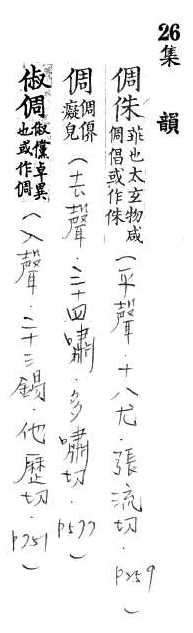 26
集韻
倜侏 誑也太玄物咸倜倡或作侏(平聲.十八尤.張流切.p259)
倜 倜儣癡皃(去聲.三十四嘯.多嘯切.p577)
俶倜 俶儻卓異也或作倜(入聲.二十三錫.他歷切.p751)